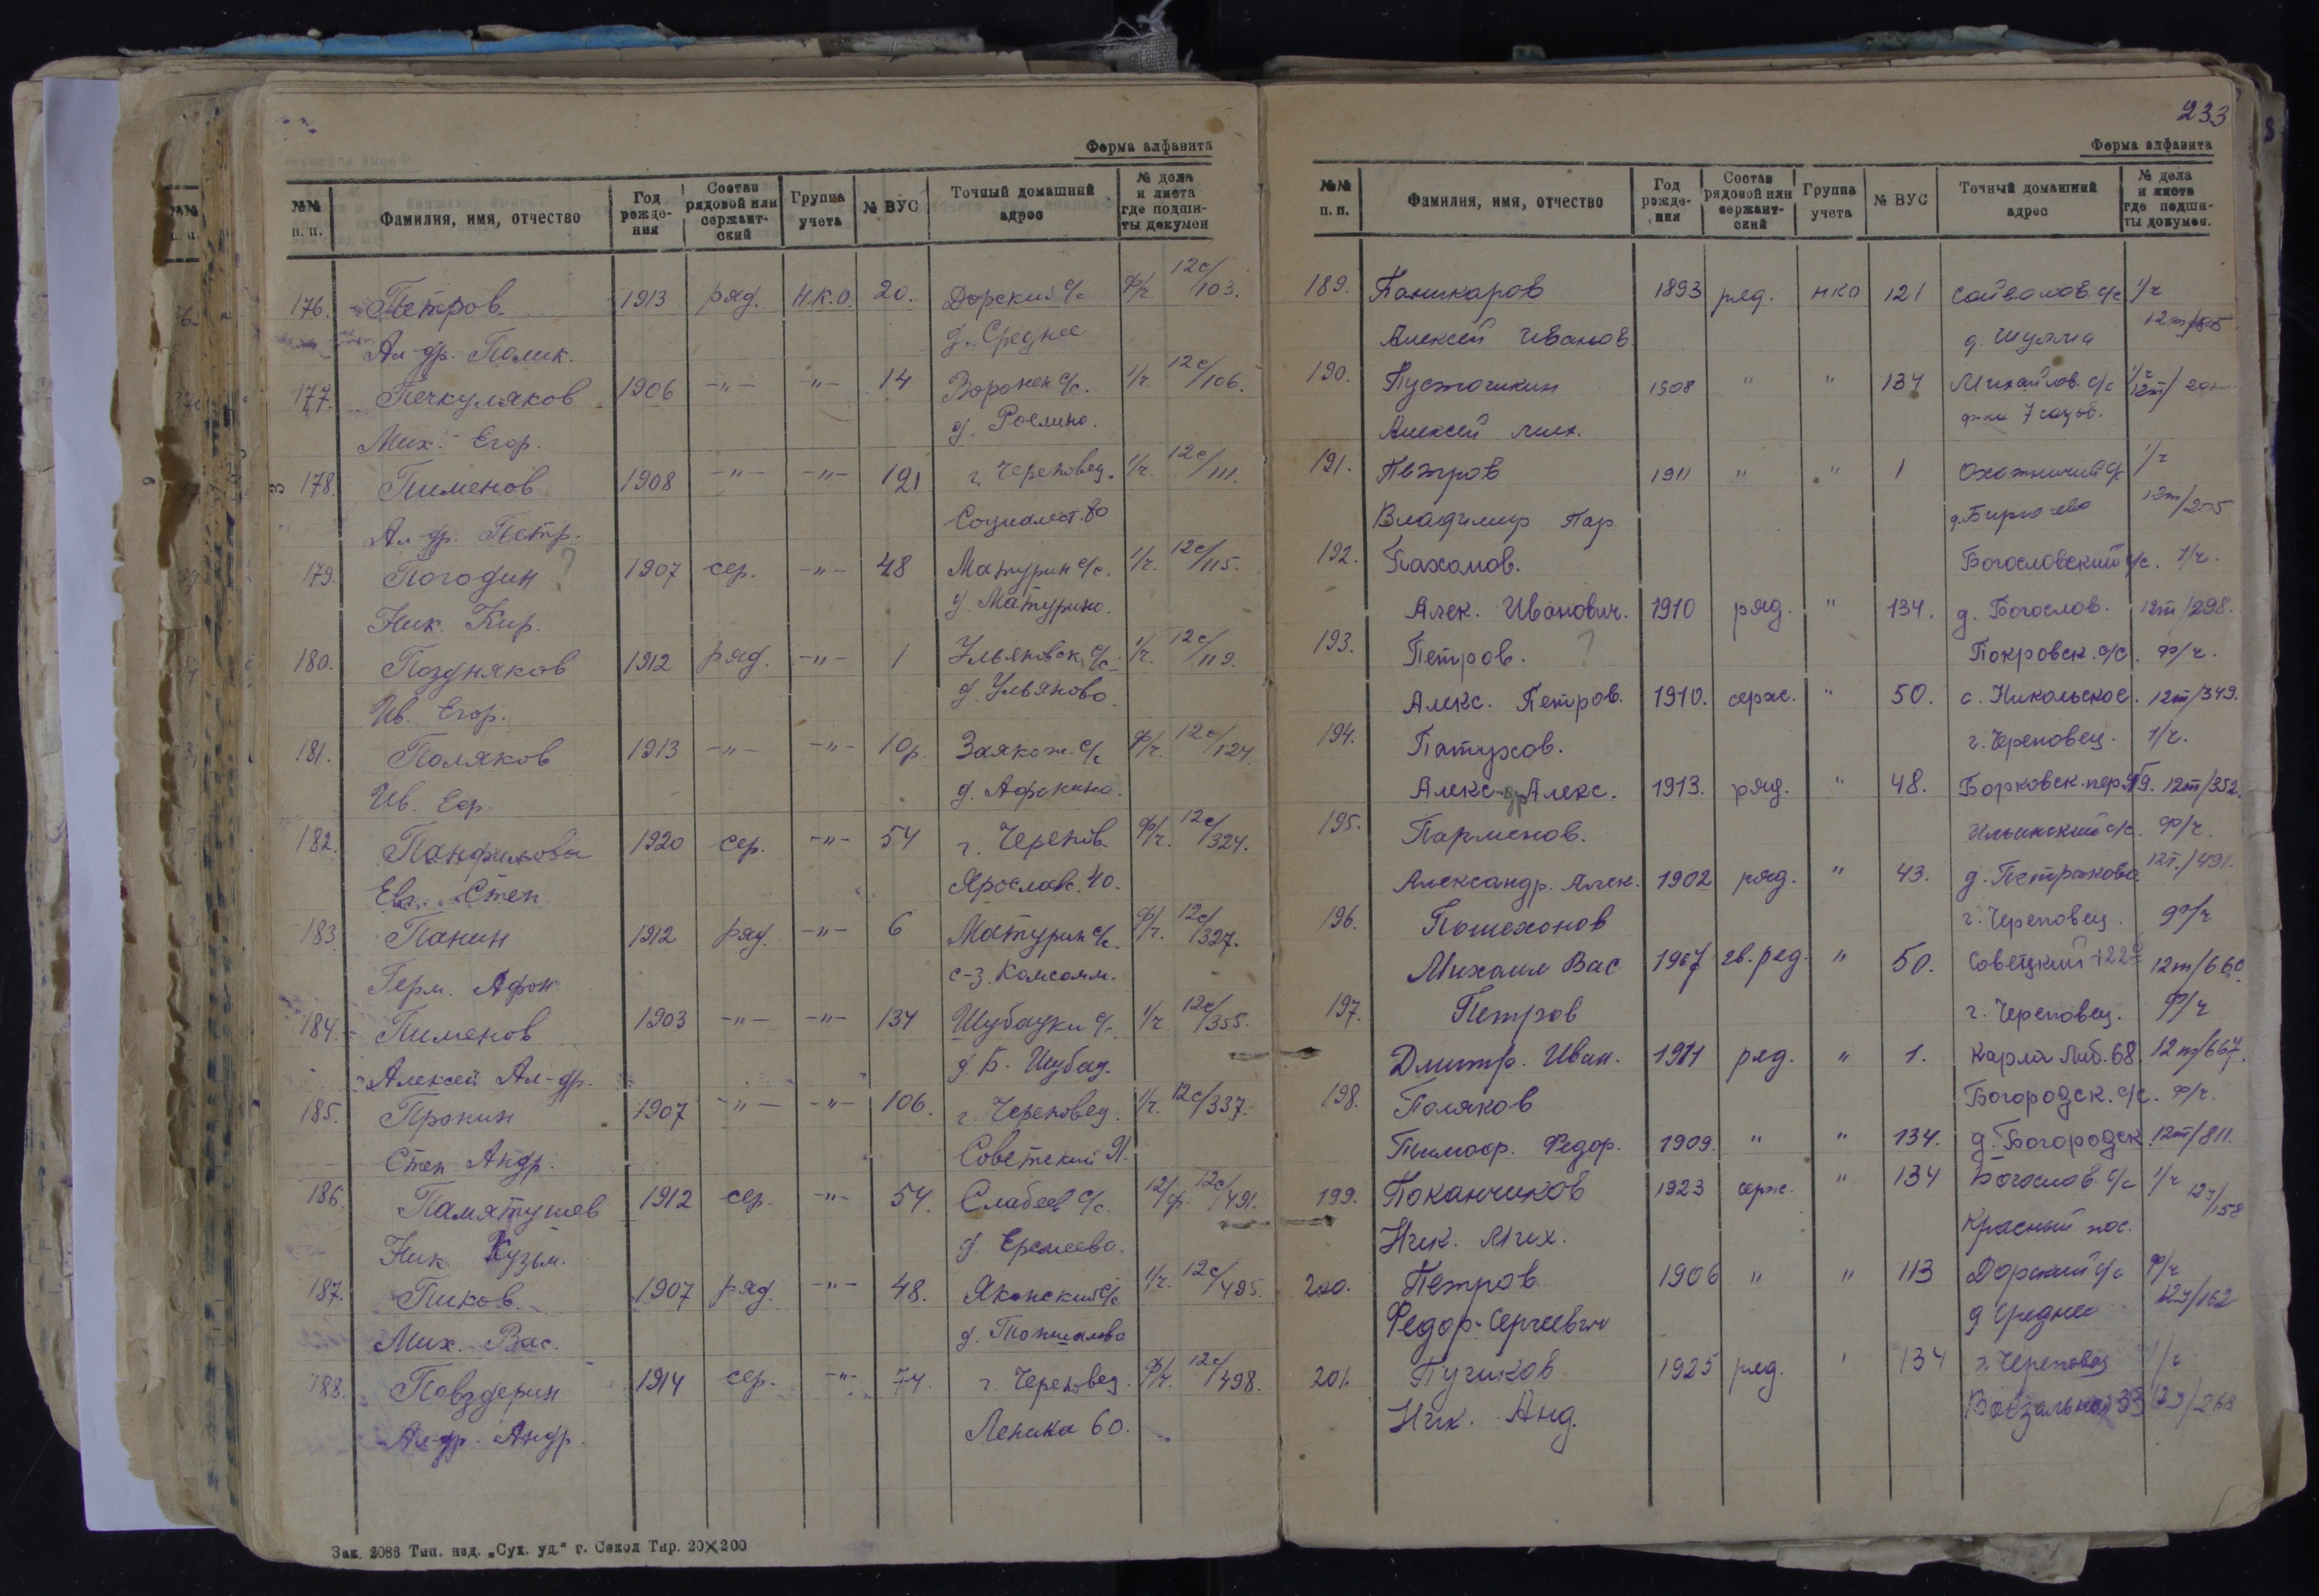 Форма алфавита
№№ п. п. Фамилия, имя, отчество Год рожде-ния Состав рядовой или сержант-ский Группа учета № ВУС Точный домашний адрес № дела и листа где подши-ты докумен
176. Петров 1913 ряд. Н.К.О. 20. Дорский с/с ф/ч. 12с/103.
Ал-др. Полик. д. Среднее
177. Печкуляков 1906 -"- -"- 14 Воронен с/с. 1/ч. 12с/106.
Мих. Егор. д. Рослино.
178. Пименов 1908 -"- -"- 121 г. Череповец. 1/ч. 12с/111.
Ал-др. Петр. Социалист. 80
179. Погодин ? 1907 сер. -"- 48 Матурин с/с. 1/ч. 12с/115.
Ник. Кир. д. Матурино.
180. Поздняков 1912 ряд. -"- 1 Ульяновск. с/с 1/ч. 12с/119.
Ив. Егор. д. Ульяново.
181. Поляков 1913 -"- -"- 10р. Заякош. с/с ф/ч. 12с/124
Ив. Еф. д. Афонино.
182. Панфилова 1920 сер. -"- 54 г. Черепов. ф/ч. 12с/324.
Евг. Степ. Ярославс. 40.
183. Панин 1912 ряд. -"- 6 Матурин с/с. ф/ч. 12с/327.
Герм. Афон. с-з. Комсомл.
184. Пименов 1903 -"- -"- 134 Шубацки с/с 1/ч 12с/355.
Алексей Ал-др. д. Б. Шубац.
185. Пронин 1907 -"- -"- 106. г. Череповец. 1/ч. 12с/337.
Степ. Андр. Советский
186. Памятушев 1912 сер. -"- 54. Слабеев с/с. 12с/491.
Ник. Кузьм. д. Еремеево.
187. Пиков. 1907 ряд. -"- 48. Яконский с/с 1/ч. 12с/495.
Мих. Вас. д.
188. Повздерин 1914 сер. -"- 74. г. Череповец. ф/ч. 12с/498.
Ал-др. Андр. Ленина 60.
Зак. 2086 Тип. изд. „Сух. уд.“ г. Сокол Тир. 20×200
233
Форма алфавита
№№ п. п. Фамилия, имя, отчество Год рожде-ния Состав рядовой или сержант-ский Группа учета № ВУС Точный домашний адрес № дела и листа где подши-ты докумен.
189. Паникаров 1893 ряд. НКО 121 Сойволов. с/с 1/ч
Алексей Иванов. д. Шулма
190. Пустошкин 1908 " " 134 Михайлов. с/с 1/ч
Алексей Мих.
191. Петров 1911 " " 1 Охотничий с/с 1/ч
Владимир Пар. 12т/205
192. Пахомов. Богословский с/с. 1/ч.
Алек. Иванович. 1910 ряд. " 134. д. Богослов. 12т/298.
193. Петров. ? Покровск. с/с. ф/ч.
Алекс. Петров. 1910. серж. " 50. с. Никольское. 12т/349.
194. Патухов. г. Череповец. 1/ч.
Алекс-др Алекс. 1913. ряд. " 48. Борковск. пер. 12т/352.
195. Парменов. Ильинский с/с. ф/ч.
Александр. Алек. 1902 ряд. " 43. д. Петраково. 12т./491.
196. Пошехонов г. Череповец. ф/ч
Михаил Вас 1907 гв. ряд. " 50. Советский 122 12т/660
197. Петров г. Череповец. ф/ч
Дмитр. Иван. 1911 ряд. " 1. Карла Либ. 68 12т/667.
198. Поляков Богородск. с/с. ф/ч.
Тимоф. Федор. 1909. " " 134. д. Богородск. 12т/811.
199. Поканчиков 1923 серж. " 134 Богослов. с/с 1/ч 12у/158
Ник. Мих. Красный пос.
200. Петров 1906 " " 113 Дорский с/с ф/ч
Федор Сергеевич д Среднее 12у/162
201. Пучков 1925 ряд. " 134 г. Череповец 1/ч
Ник. Анд. Вокзальная 33 12у/268